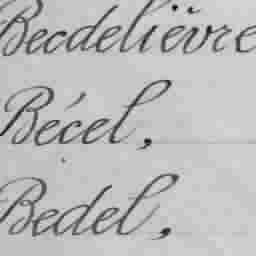 Becdelièvre
Bécel,
Bedel,